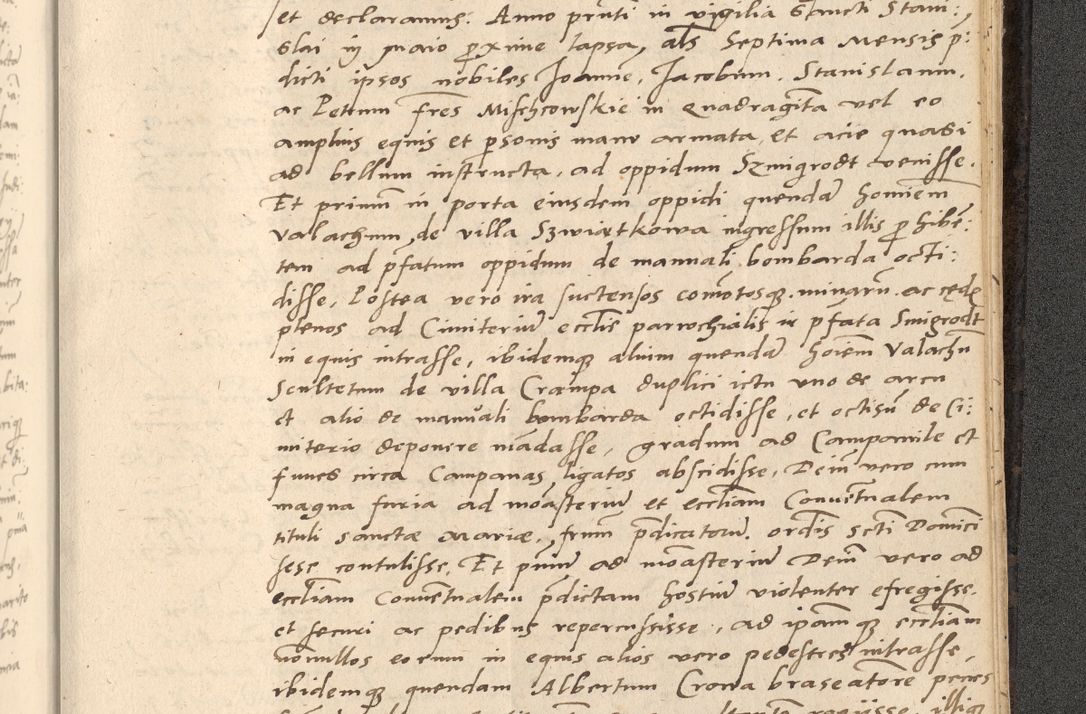 et declaramus. Anno prnti in vigilia Sancti Stani:,
slai in maio proxime lapsa, als septima Mensis p:
dicti ipsos nobiles Joanne, Jacobum, Stanislaum,
ac Petrum fres Mischcowskie in Quadraginta vel eo
amplius equis et psonis manu armata, et acie quasi
ad bellum instructa, ad oppidum Szmigrodt venisse.
Et primum in porta eiusdem oppidi quendam homiem
Valachum, de villa Szwiatkowa ingressum illis phiben:
tem ad pfatum oppidum de manuali bombarda octi:
disse, Postea vero ira suctensos comotosque minarum ac cedis
plenos ad Cimiterium ecctis parrochialis in pfata Smigrodt
in equis intrasse, ibidemque alium quendam hoiem Valachu
Scultetum de villa Crampa duplici ictu uno de arcu
et alio de manuali bombarda octidisse, et octisum de Ci:
miterio deponere madasse, gradum ad Campanile et
funes circa Campanas ligatos abscidisse, Dein vero cum
magna furia ad moasterium et eccliam Conventualem
tituli sanctæ Mariæ, frum pdicatorum, ordis scti Domici
sese contulisse, Et primum ad moasterium Dein vero ad
eccliam Conventualem pdictam hostium violenter efregisse,
et securi ac pedibus repercussisse, ad ipamque eccliam
nonnullos eorum in equis alios vero pedestres intrasse,
ibidemque quendam Albertum Crona braseatore penes